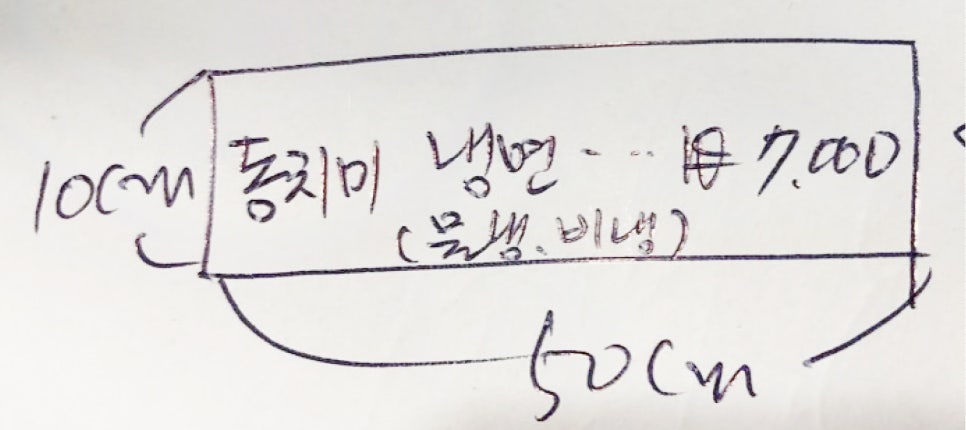 10cm
동치미 냉면 ... ₩ 7.000
(물냉.비냉)
50cm